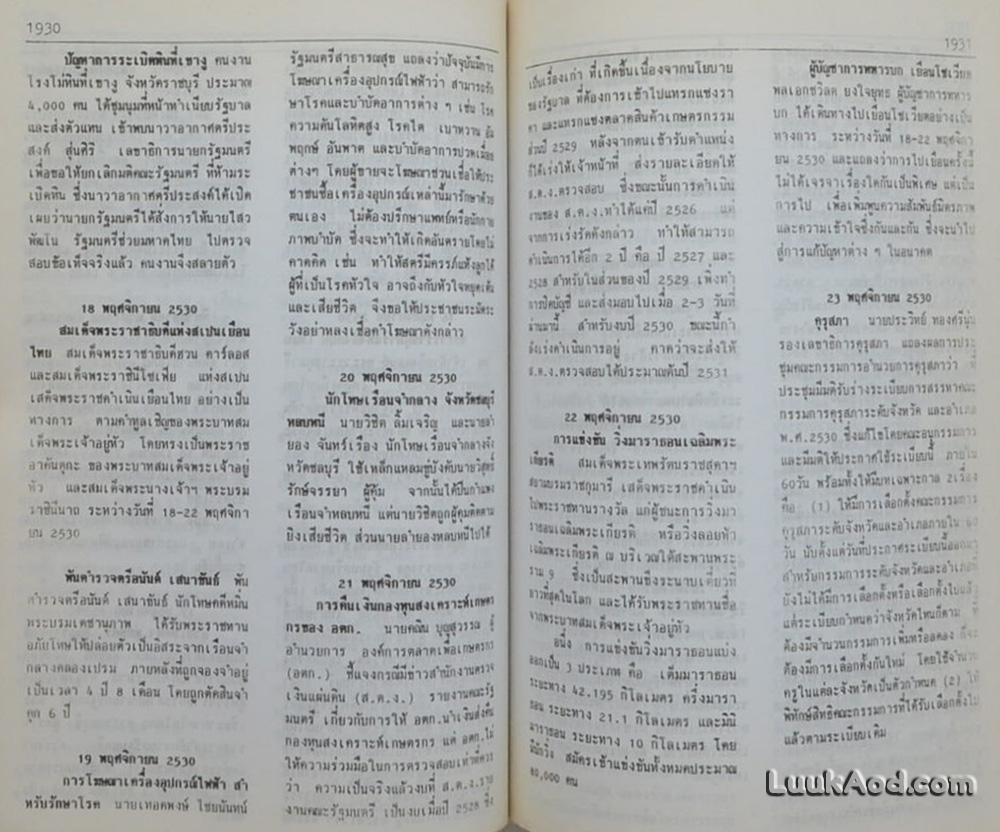 1930
ปัญหาการระเบิดหินที่เขางู คนงาน
โรงโม่หินที่เขางู จังหวัดราชบุรี ประมาณ
4,000 คน ได้ชุมนุมที่หน้าทำเนียบรัฐบาล
และส่งตัวแทน เข้าพบนาวาอากาศตรีประ
สงค์ สุ่นศิริ เลขาธิการนายกรัฐมนตรี
เพื่อขอให้ยกเลิกมติคณะรัฐมนตรี ที่ห้ามระ
เบิดหิน ซึ่งนาวาอากาศตรีประสงค์ได้เปิด
เผยว่านายกรัฐมนตรีได้สั่งการให้นายไสว
พัฒโน รัฐมนตรีช่วยมหาดไทย ไปตรวจ
สอบข้อเท็จจริงแล้ว คนงานจึงสลายตัว
18 พฤศจิกายน 2530
สมเด็จพระราชาธิบดีแห่งสเปนเยือน
ไทย สมเด็จพระราชาธิบดีฮวน คาร์ลอส
และสมเด็จพระราชินีโซเฟีย แห่งสเปน
เสด็จพระราชดำเนินเยือนไทย อย่างเป็น
ทางการ ตามคำทูลเชิญของพระบาทสม
เด็จพระเจ้าอยู่หัว โดยทรงเป็นพระราช
อาคันตุกะ ของพระบาทสมเด็จพระเจ้าอยู่
หัว และสมเด็จพระนางเจ้าฯ พระบรม
ราชินีนาถ ระหว่างวันที่ 18-22 พฤศจิกา
ยน 2530
พันตำรวจตรีอนันต์ เสนาขันธ์ พัน
ตำรวจตรีอนันต์ เสนาขันธ์ นักโทษคดีหมิ่น
พระบรมเดชานุภาพ ได้รับพระราชทาน
อภัยโทษให้ปล่อยตัวเป็นอิสระจากเรือนจำ
กลางคลองเปรม ภายหลังที่ถูกจองจำอยู่
เป็นเวลา 4 ปี 8 เดือน โดยถูกตัดสินจำ
คุก 6 ปี
19 พฤศจิกายน 2530
การโฆษณาเครื่องอุปกรณ์ไฟฟ้า สำ
หรับรักษาโรค นายเทอดพงษ์ ไชยนันทน์
รัฐมนตรีสาธารณสุข แถลงว่าปัจจุบันมีการ
โฆษณาเครื่องอุปกรณ์ไฟฟ้าว่า สามารถรัก
ษาโรคและบำบัดอาการต่าง ๆ เช่น โรค
ความดันโลหิตสูง โรคไต เบาหวาน อัม
พฤกษ์ อัมพาต และบำบัดอาการปวดเมื่อย
ต่างๆ โดยผู้ขายจะโฆษณาชวนเชื่อให้ประ
ชาชนซื้อเครื่องอุปกรณ์เหล่านี้มารักษาด้วย
ตนเอง ไม่ต้องปรึกษาแพทย์หรือนักกาย
ภาพบำบัด ซึ่งจะทำให้เกิดอันตรายโดยไม่
คาดคิด เช่น ทำให้สตรีมีครรภ์แท้งลูกได้
ผู้ที่เป็นโรคหัวใจ อาจถึงกับหัวใจหยุดเต้น
และเสียชีวิต จึงขอให้ประชาชนระมัดระ
วังอย่าหลงเชื่อคำโฆษณาดังกล่าว
20 พฤศจิกายน 2530
นักโทษเรือนจำกลาง จังหวัดชลบุรี
หลบหนี นายวิชิต ลิ้มเจริญ และนายลำ
ยอง จันทร์เรือง นักโทษเรือนจำกลางจัง
หวัดชลบุรี ใช้เหล็กแหลมขู่บังคับนายวิสูตร
รักษ์จรรยา ผู้คุม จากนั้นได้ปีนกำแพง
เรือนจำหลบหนี แต่นายวิชิตถูกผู้คุมติดตาม
ยิงเสียชีวิต ส่วนนายลำยองหลบหนีไปได้
21 พฤศจิกายน 2530
การคืนเงินกองทุนสงเคราะห์เกษต
รกรของ อตก. นายคณิน บุญสุวรรณ ผู้
อำนวยการ องค์การตลาดเพื่อเกษตรกร
(อตก.) ชี้แจงกรณีมีข่าวสำนักงานตรวจ
เงินแผ่นดิน (ส.ต.ง.) รายงานคณะรัฐ
มนตรี เกี่ยวกับการให้ อตก.นำเงินส่งคืน
กองทุนสงเคราะห์เกษตรกร แต่ อตก.ไม่
ให้ความร่วมมือในการตรวจสอบเท่าที่ควร
ว่า ความเป็นจริงแล้วงบที่ ส.ต.ง.ราย
งานคณะรัฐมนตรี เป็นงบเมื่อปี 2528 ซึ่ง
1931
เป็นเรื่องเก่า ที่เกิดขึ้นเนื่องจากนโยบาย
ของรัฐบาล ที่ต้องการเข้าไปแทรกแซงรา
คา และแทรกแซงตลาดสินค้าเกษตรกรรม
ส่วนปี 2529 หลังจากตนเข้ารับตำแหน่ง
ก็ได้เร่งให้เจ้าหน้าที่ ส่งรายละเอียดให้
ส.ต.ง.ตรวจสอบ ซึ่งขณะนั้นการดำเนิน
งานของ ส.ต.ง.ทำได้แค่ปี 2526 แต่
จากการเร่งรัดดังกล่าว ทำให้สามารถ
ดำเนินการได้อีก 2 ปี คือ ปี 2527 และ
2528 สำหรับในส่วนของปี 2529 เพิ่งทำ
การปิดบัญชี และส่งมอบไปเมื่อ 2-3 วันที่
ผ่านมานี้ สำหรับงบปี 2530 ขณะนี้กำ
ลังเร่งดำเนินการอยู่ คาดว่าจะส่งให้
ส.ต.ง.ตรวจสอบได้ประมาณต้นปี 2531
22 พฤศจิกายน 2530
การแข่งขัน วิ่งมาราธอนเฉลิมพระ
เกียรติ สมเด็จพระเทพรัตนราชสุดาฯ
สยามบรมราชกุมารี เสด็จพระราชดำเนิน
ไปพระราชทานรางวัล แก่ผู้ชนะการวิ่งมา
ราธอนเฉลิมพระเกียรติ หรือวิ่งลอยฟ้า
เฉลิมพระเกียรติ ณ บริเวณใต้สะพานพระ
ราม 9 ซึ่งเป็นสะพานขึงระนาบเดี่ยวที่
ยาวที่สุดในโลก และได้รับพระราชทานชื่อ
จากพระบาทสมเด็จพระเจ้าอยู่หัว
อนึ่ง การแข่งขันวิ่งมาราธอนแบ่ง
ออกเป็น 3 ประเภท คือ เต็มมาราธอน
ระยะทาง 42.195 กิโลเมตร ครึ่งมารา
ธอน ระยะทาง 21.1 กิโลเมตร และมินิ
มาราธอน ระยะทาง 10 กิโลเมตร โดย
มีนักวิ่ง สมัครเข้าแข่งขันทั้งหมดประมาณ
80,000 คน
ผู้บัญชาการทหารบก เยือนโซเวียต
พลเอกชวลิต ยงใจยุทธ ผู้บัญชาการทหาร
บก ได้เดินทางไปเยือนโซเวียตอย่างเป็น
ทางการ ระหว่างวันที่ 18-22 พฤศจิกา
ยน 2530 และแถลงว่าการไปเยือนครั้งนี้
ไม่ได้เจรจาเรื่องใดกันเป็นพิเศษ แต่เป็น
การไป เพื่อเพิ่มพูนความสัมพันธ์มิตรภาพ
และความเข้าใจซึ่งกันและกัน ซึ่งจะนำไป
สู่การแก้ปัญหาต่าง ๆ ในอนาคต
23 พฤศจิกายน 2530
คุรุสภา นายประวิทย์ ทองศรีนุ่น
รองเลขาธิการคุรุสภา แถลงผลการประ
ชุมคณะกรรมการอำนวยการคุรุสภาว่า ที่
ประชุมมีมติรับร่างระเบียบการสรรหาคณะ
กรรมการคุรุสภาระดับจังหวัด และอำเภอ
พ.ศ.2530 ซึ่งแก้ไขโดยคณะอนุกรรมการ
และมีมติให้ประกาศใช้ระเบียบนี้ ภายใน
60วัน พร้อมทั้งให้มีบทเฉพาะกาล 2เรื่อง
คือ (1) ให้มีการเลือกตั้งคณะกรรมการ
คุรุสภาระดับจังหวัดและอำเภอภายใน 60
วัน นับตั้งแต่วันที่ประกาศระเบียบนี้ออกมา
สำหรับกรรมการระดับจังหวัดและอำเภอที่
ยังไม่ได้มีการเลือกตั้งหรือเลือกตั้งไปแล้ว
แต่ระเบียบกำหนดว่าจังหวัดไหนก็ตาม ที่
ต้องมีจำนวนกรรมการเพิ่มหรือลดลง ก็จะ
ต้องมีการเลือกตั้งกันใหม่ โดยใช้จำนวน
ครูในแต่ละจังหวัดเป็นตัวกำหนด (2) ให้
พิทักษ์สิทธิคณะกรรมการที่ได้รับเลือกตั้งไป
แล้วตามระเบียบเดิม
LuukAod.com